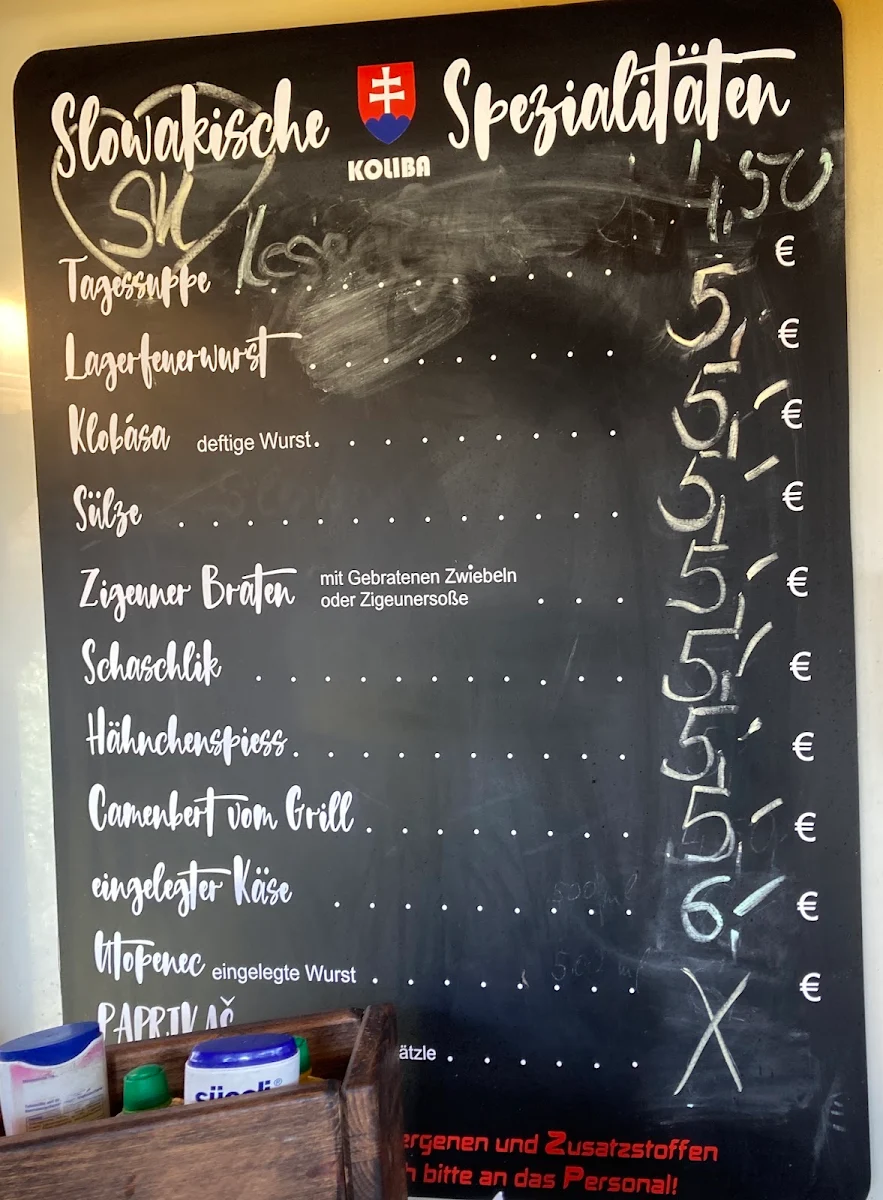 Slowakische Spezialitäten
KOLIBA
SK
4,50
Tagessuppe . . . . . . . . . . €
Lagerfeuerwurst . . . . . . . 5,- €
Klobása deftige Wurst. . . . . . . . 5,- €
Sülze . . . . . . . . . . . 5,- €
Zigeuner Braten mit Gebratenen Zwiebeln
oder Zigeunersoße . . . 5,- €
Schaschlik . . . . . . . . . . 5,- €
Hähnchenspiess. . . . . . . . . 5,- €
Camenbert vom Grill . . . . . . . . 5,- €
eingelegter Käse . . . . . . . . . 6,- €
Utopenec eingelegte Wurst . . . . . . . . X €
PAPRIKAŠ
ätzle . . . . . .
süssli®
ergenen und Zusatzstoffen
h bitte an das Personal!